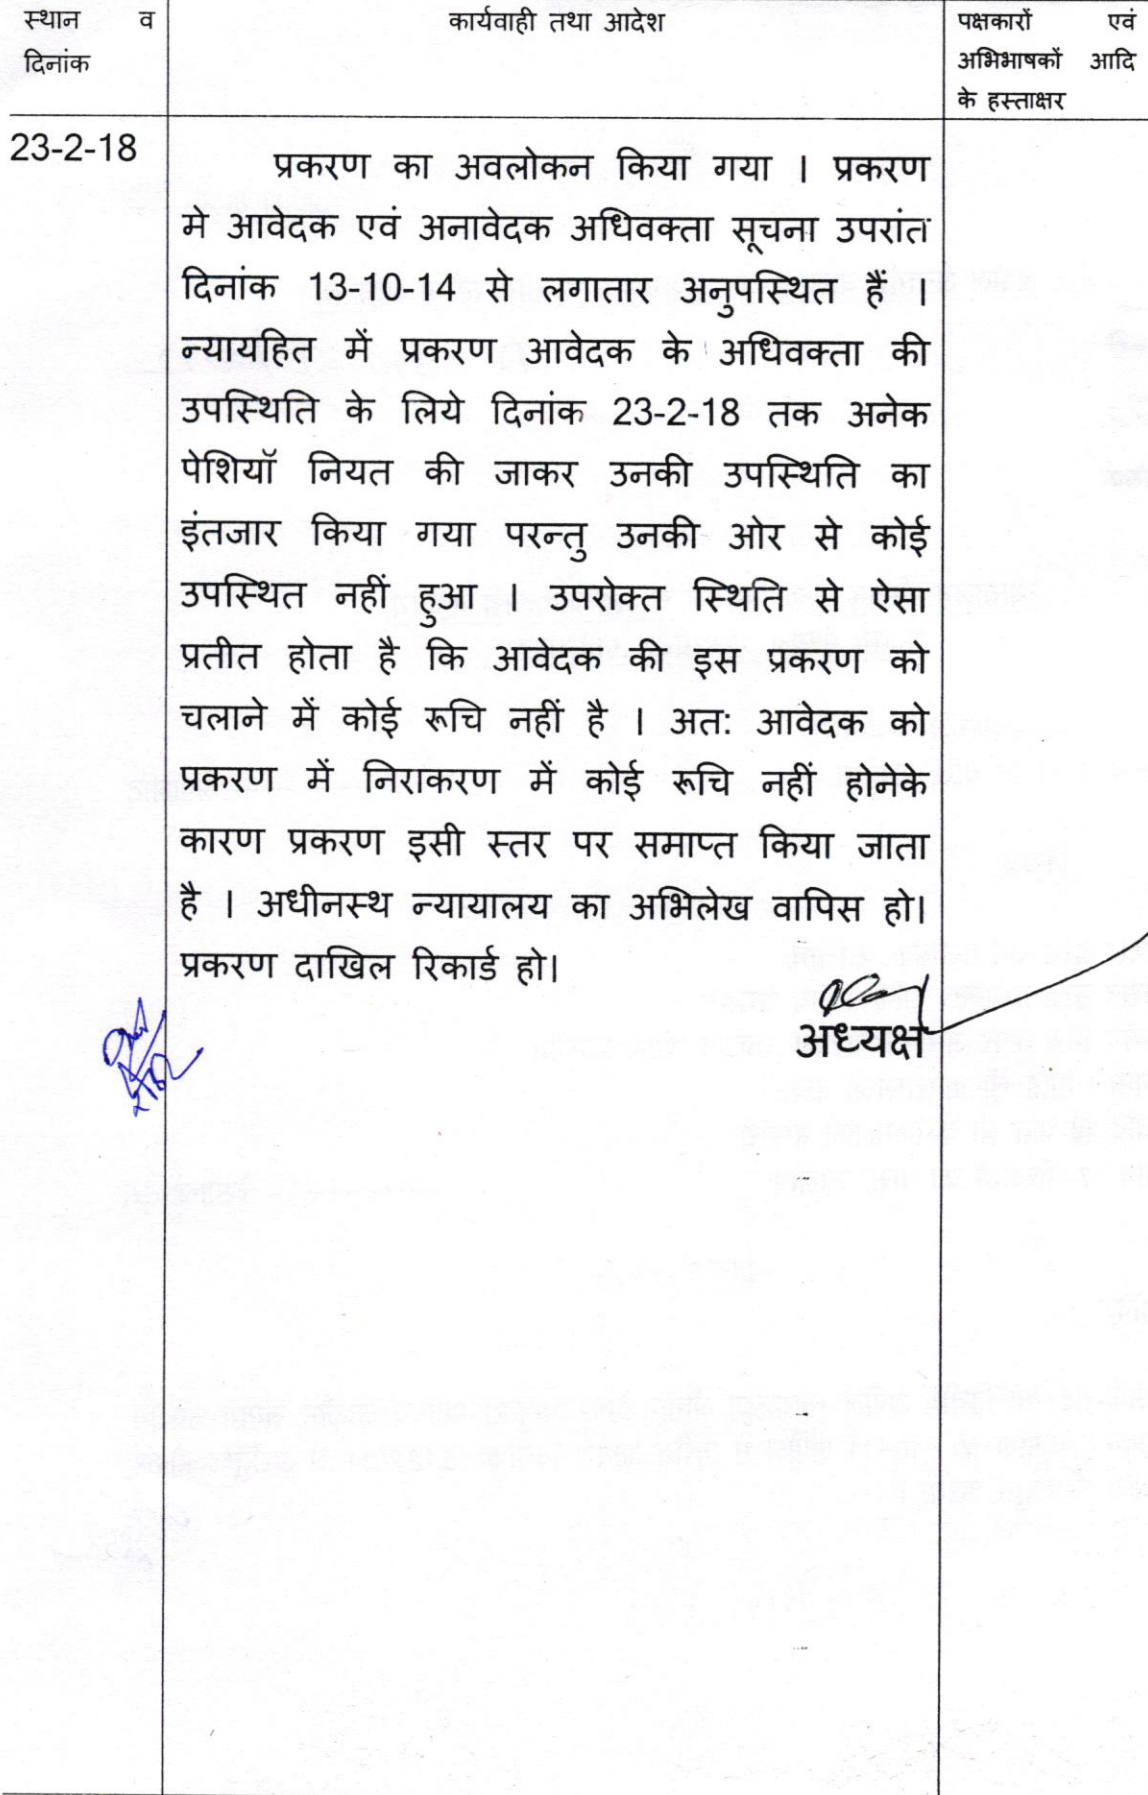 स्थान व
दिनांक
कार्यवाही तथा आदेश
पक्षकारों एवं
अभिभाषकों आदि
के हस्ताक्षर
23-2-18
प्रकरण का अवलोकन किया गया । प्रकरण
मे आवेदक एवं अनावेदक अधिवक्ता सूचना उपरांत
दिनांक 13-10-14 से लगातार अनुपस्थित हैं ।
न्यायहित में प्रकरण आवेदक के अधिवक्ता की
उपस्थिति के लिये दिनांक 23-2-18 तक अनेक
पेशियॉ नियत की जाकर उनकी उपस्थिति का
इंतजार किया गया परन्तु उनकी ओर से कोई
उपस्थित नहीं हुआ । उपरोक्त स्थिति से ऐसा
प्रतीत होता है कि आवेदक की इस प्रकरण को
चलाने में कोई रूचि नहीं है । अत: आवेदक को
प्रकरण में निराकरण में कोई रूचि नहीं होनेके
कारण प्रकरण इसी स्तर पर समाप्त किया जाता
है । अधीनस्थ न्यायालय का अभिलेख वापिस हो।
प्रकरण दाखिल रिकार्ड हो।
अध्यक्ष